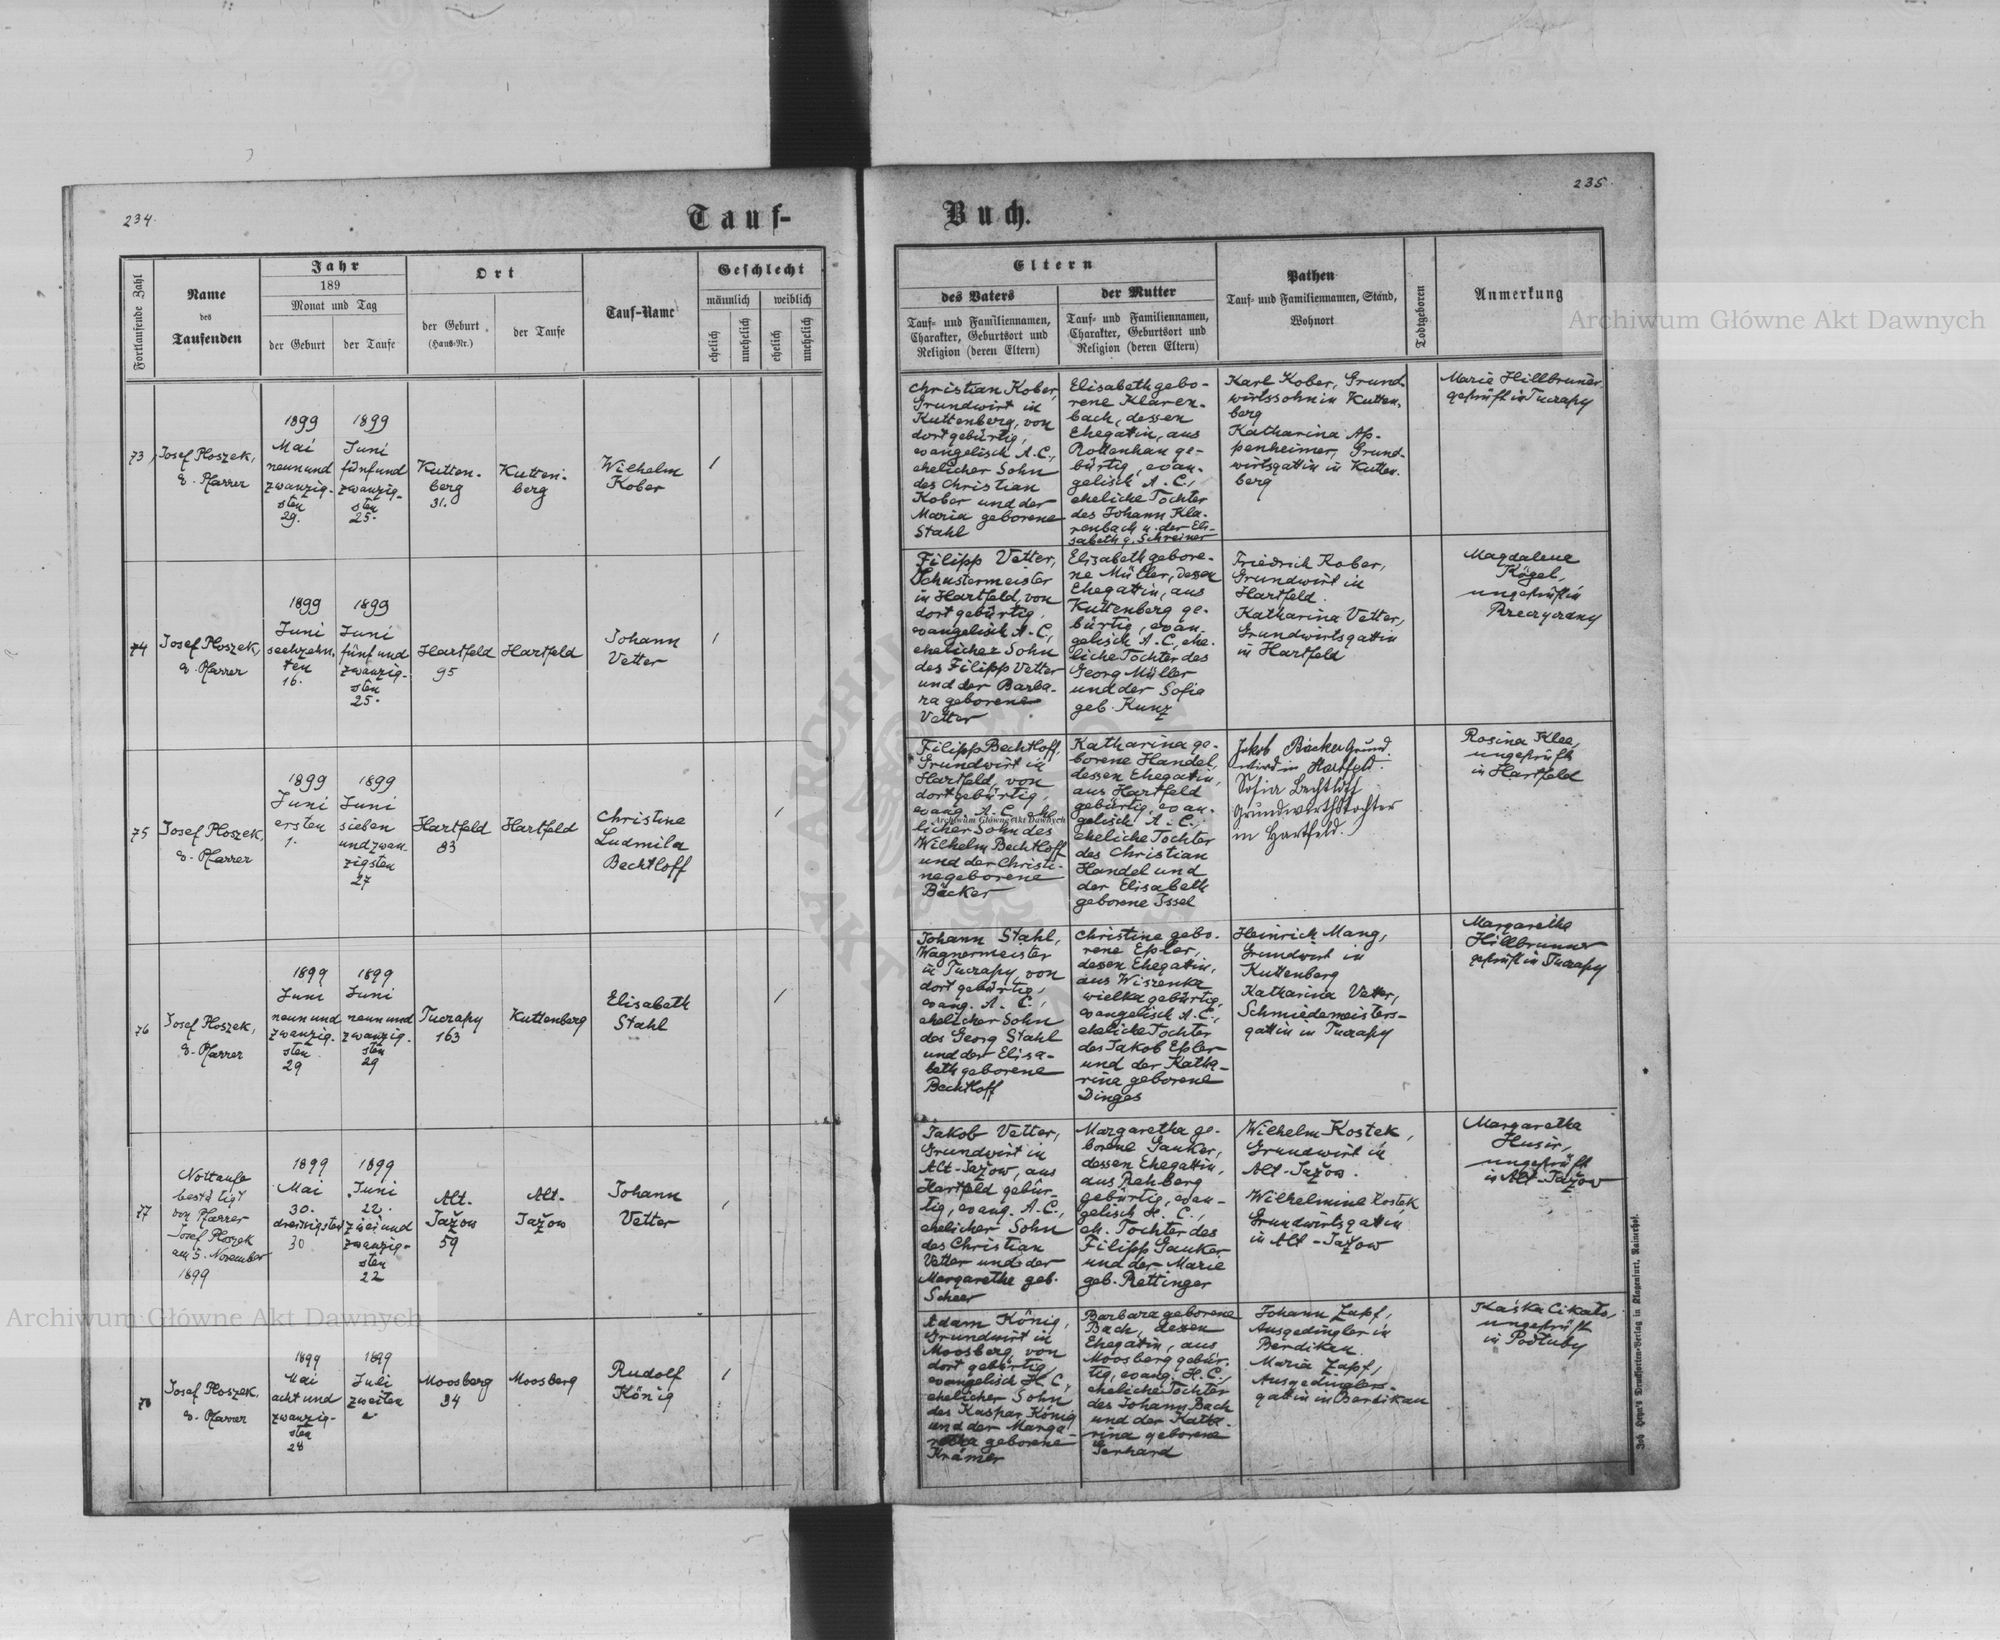 234.
Tauf-
Fortlaufende Zahl
Name
des
Taufenden
Jahr
189
Monat und Tag
der Geburt
der Taufe
Ort
der Geburt
(Haus-Nr.)
der Taufe
Tauf-Name
Geschlecht
männlich
weiblich
ehelich
unehelich
ehelich
unehelich
73
Josef Ploszek,
e. Pfarrer
1899
Mai
neunund
zwanzig-
sten
29.
1899
Juni
fünfund
zwanzig-
sten
25.
Kutten-
berg
31.
Kutten-
berg
Wilhelm
Kober
74
Josef Ploszek,
e. Pfarrer
1899
Juni
sechzehn-
ten
16.
1899
Juni
fünfund
zwanzig-
sten
25.
Hartfeld
95
Hartfeld
Johann
Vetter
75
Josef Ploszek,
e. Pfarrer
1899
Juni
ersten
1.
1899
Juni
sieben
undzwan-
zigsten
27
Hartfeld
83
Hartfeld
Christine
Ludmila
Bechtloff
76
Josef Ploszek,
e. Pfarrer
1899
Juni
neunund
zwanzig-
sten
29
1899
Juni
neunund
zwanzig-
sten
29
Tuczapy
163
Kuttenberg
Elisabeth
Stahl
77
Nottaufe
bestätigt
von Pfarrer
Josef Ploszek
am 5. November
1899
1899
Mai
30.
dreissigsten
30
1899
Juni
22.
zweiund
zwanzig-
sten
22
Alt-
Jažow
59
Alt-
Jažow
Johann
Vetter
78
Josef Ploszek,
e. Pfarrer
1899
Mai
achtund
zwanzig-
sten
28
1899
Juli
zweiten
2.
Moosberg
34
Moosberg
Rudolf
König
235.
Buch.
Eltern
des Vaters
Tauf- und Familiennamen,
Charakter, Geburtsort und
Religion (deren Eltern)
der Mutter
Tauf- und Familiennamen,
Charakter, Geburtsort und
Religion (deren Eltern)
Pathen
Tauf- und Familiennamen, Stand,
Wohnort
Todtgeboren
Anmerkung
Christian Kober,
Grundwirt in
Kuttenberg, von
dort gebürtig,
evangelisch A.C.,
ehelicher Sohn
des Christian
Kober und der
Maria geborene
Stahl
Elisabeth gebo-
rene Klaren-
bach, dessen
Ehegatin, aus
Rottenhan ge-
bürtig, evan-
gelisch A.C.,
eheliche Tochter
des Johann Kla-
renbach u. der Eli-
sabeth g. Schreiner
Karl Kober, Grund-
wirtssohn in Kutten-
berg
Katharina Ap-
penheimer, Grund-
wirtsgattin in Kutten-
berg
Marie Hillbruner
geprüft in Tuczapy
Filipp Vetter,
Schustermeister
in Hartfeld, von
dort gebürtig,
evangelisch A.C.,
ehelicher Sohn
des Filipp Vetter
und der Barba-
ra geborene
Vetter
Elisabeth gebore-
ne Müller, dessen
Ehegattin, aus
Kuttenberg ge-
bürtig, evan-
gelisch A.C., ehe-
liche Tochter des
Georg Müller
und der Sofia
geb. Kunz
Friedrich Kober,
Grundwirt in
Hartfeld.
Katharina Vetter,
Grundwirtsgattin
in Hartfeld
Magdalena
Kögel,
ungeprüft in
Filipp Bechtloff,
Grundwirt in
Hartfeld, von
dort gebürtig,
evang. A.C., ehe-
licher Sohn des
Wilhelm Bechtloff
und der Christi-
ne geborene
Bäcker
Katharina ge-
borene Handel,
dessen Ehegatin,
aus Hartfeld
gebürtig, evan-
gelisch A.C.,
eheliche Tochter
des Christian
Handel und
der Elisabeth
geborene Issel
Jakob Bäcker Grund-
wird in Hartfeld.
Sofia Bechtloff
Grundwirthstochter
in Hartfeld.
Rosina Klee,
ungeprüft
in Hartfeld
Johann Stahl,
Wagnermeister
in Tuczapy, von
dort gebürtig,
evang. A.C.,
ehelicher Sohn
des Georg Stahl
und der Elisa-
beth geborene
Bechtloff
Christine gebo-
rene Epler,
dessen Ehegattin,
aus Wiszenka
wielka gebürtig,
evangelisch A.C.,
eheliche Tochter
des Jakob Epler
und der Katha-
rina geborene
Dinges
Heinrich Mang,
Grundwirt in
Kuttenberg
Katharina Vetter,
Schmiedemeisters-
gattin in Tuczapy
Margaretha
Hillbrunner
geprüft in Tuczapy
Jakob Vetter,
Grundwirt in
Alt-Jažow, aus
Hartfeld gebür-
tig, evang. A.C.,
ehelicher Sohn
des Christian
Vetter und der
Margarethe geb.
Scheer
Margaretha ge-
borene Gauker,
dessen Ehegattin,
aus Rehberg
gebürtig, evan-
gelisch H.C.,
eh. Tochter des
Filipp Gauker
und der Marie
geb. Rettinger
Wilhelm Kostek,
Grundwirt in
Alt-Jažow.
Wilhelmine Kostek
Grundwirtsgattin
in Alt-Jažow
Margaretha
Husir,
ungeprüft
in Alt-Jažow
Adam König,
Grundwirt in
Moosberg, von
dort gebürtig,
evangelisch H.C,
ehelicher Sohn
des Kaspar König
und der Marga-
retha geborene
Krämer
Barbara geborene
Bach, dessen
Ehegatin, aus
Moosberg gebür-
tig, evang. H.C.,
eheliche Tochter
des Johann Bach
und der Katha-
rina geborene
Gerhard
Johann Zapf,
Ausgedingler in
Berdikau.
Maria Zapf,
Ausgedinglers-
gattin in Berdikau
Kaśka Cikało,
ungeprüft
in Podłuby
Joh. Heyn's Drucksorten-Verlag in Klagenfurt, Rainerhof.
Archiwum Główne Akt Dawnych
Archiwum Główne Akt Dawnych
Archiwum Główne Akt Dawnych